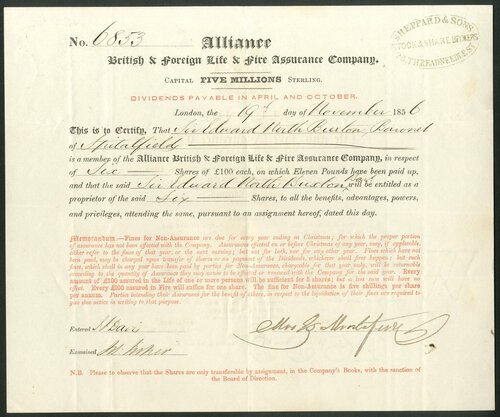 No. 6853 Alliance
SHEPPARD & SONS
STOCK & SHARE BROKERS
THREADNEEDLE ST
British & Foreign Life & Fire Assurance Company.
CAPITAL FIVE MILLIONS STERLING.
DIVIDENDS PAYABLE IN APRIL AND OCTOBER.
London, the 19th day of November 1856
This is to Certify, That Sir Edward North Buxton, Baronet
of Spitalfield
is a member of the Alliance British & Foreign Life & Fire Assurance Company, in respect
of Six Shares of £100 each, on which Eleven Pounds have been paid up,
and that the said Sir Edward North Buxton Bart will be entitled as a
proprietor of the said Six Shares, to all the benefits, advantages, powers,
and privileges, attending the same, pursuant to an assignment hereof, dated this day.
Memorandum.—Fines for Non-Assurance are due for every year ending at Christmas; for which the proper
of assurance has not been effected with the Company. Assurances effected on or before Christmas of any year, may, if applicable,
either refer to the fines of that year, or the next ensuing; but not for both, nor for any other year. Fines which have not
been paid, may be charged upon transfer of shares or on payment of the Dividends, whichever shall first happen; but such
fines, which shall in any year have been paid by parties for Non-Assurance, chargeable for that year only, will be returnable
according to the quantity of Assurance they may cause to be effected or renewed with the Company for the said year. Every
amount of £100 assured in the Life of one or more persons will be sufficient for 2 shares; but a less sum will have no
effect. Every £200 assured in Fire will suffice for one share. The fine for Non-Assurance is five shillings per share
per annum. Parties intending their Assurances for the benefit of others, in respect to the liquidation of their fines are required to
give notice in writing to that purpose.
Entered
Examined
N.B. Please to observe that the Shares are only transferable by assignment, in the Company's Books, with the sanction of
the Board of Direction.